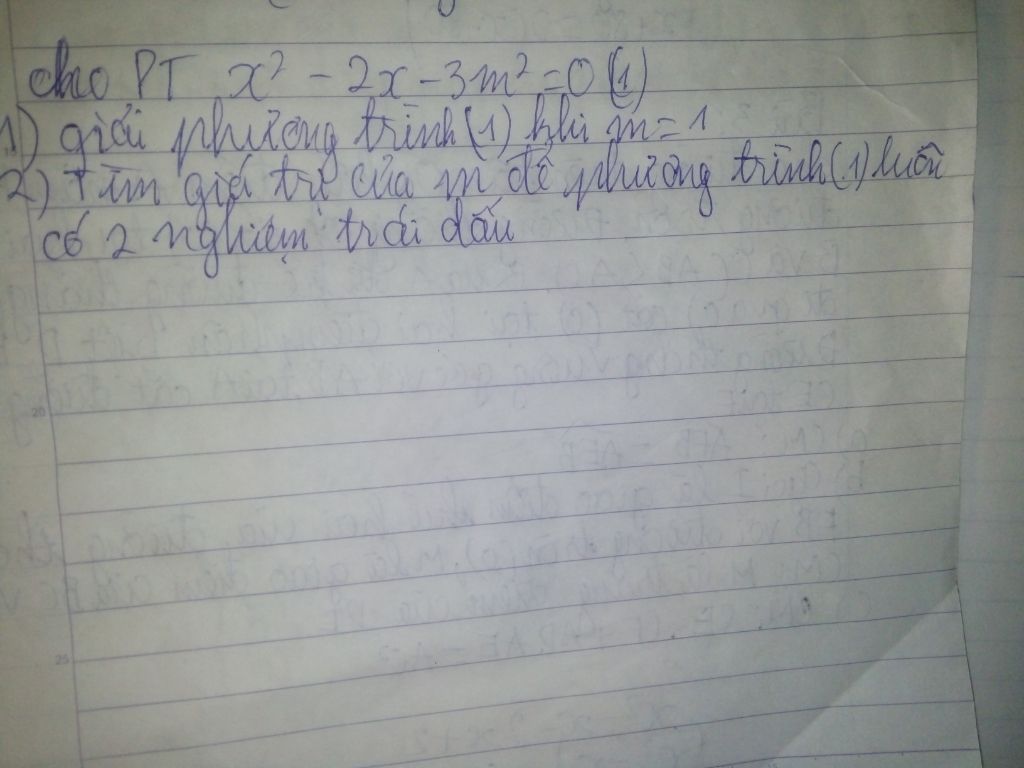 cho PT x² - 2x - 3m² = 0 (1)
1) giải phương trình (1) khi m = 1
2) Tìm giá trị của m để phương trình (1) luôn
có 2 nghiệm trái dấu
20
25